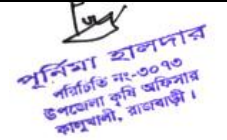 পূর্নিমা হালদার
পরিচিতি নং-৩০৭৩
উপজেলা কৃষি অফিসার
কালুখালী, রাজবাড়ী।